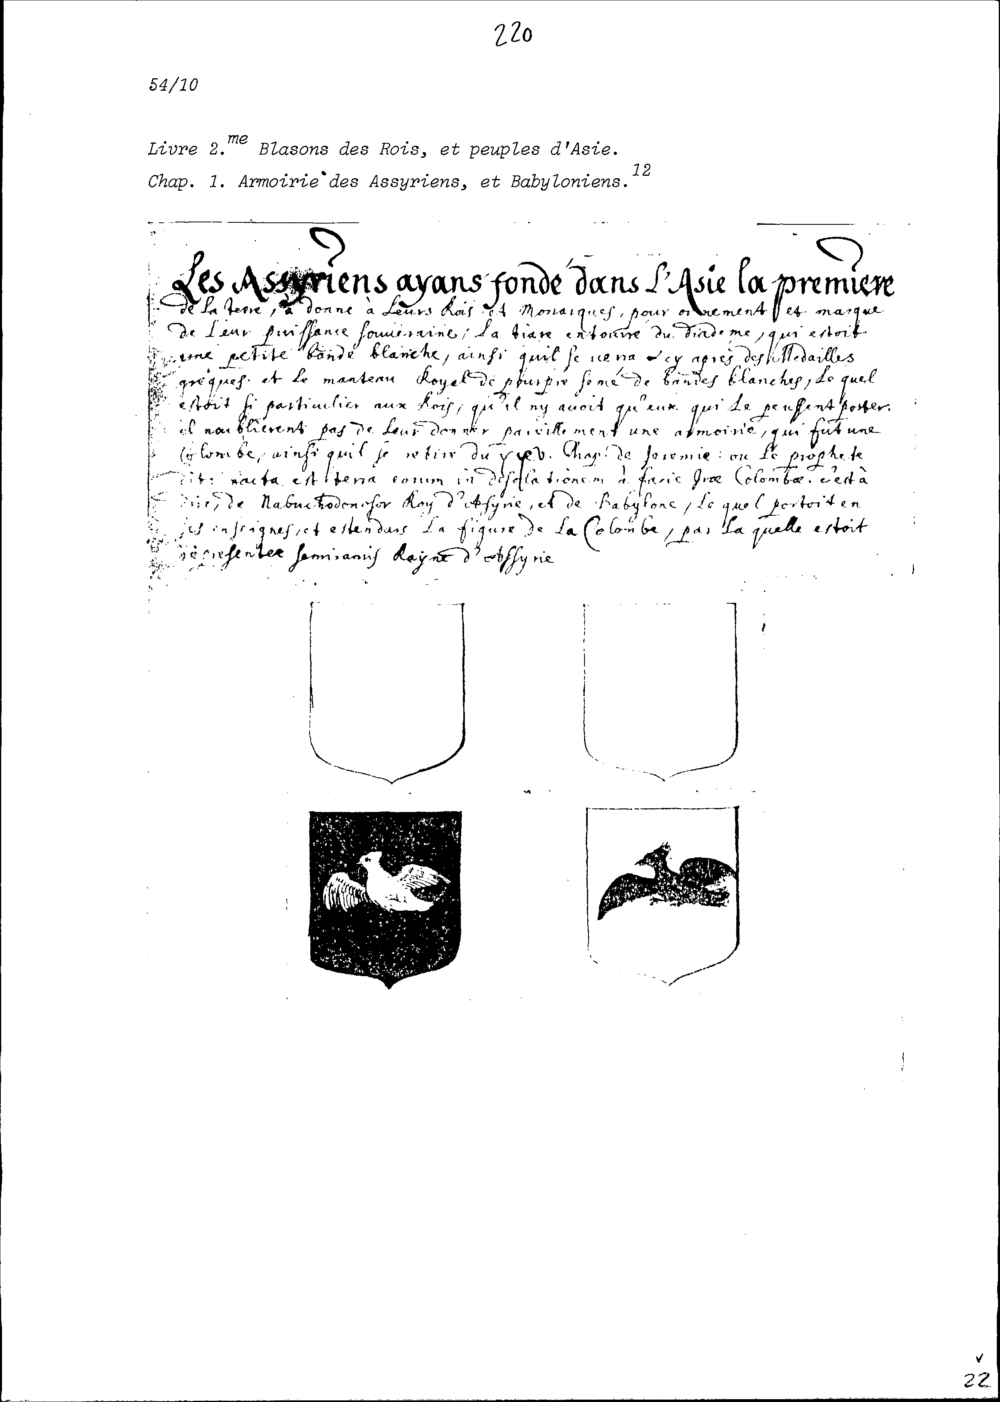 220
54/10
Livre 2.me Blasons des Rois, et peuples d'Asie.
Chap. 1. Armoirie des Assyriens, et Babyloniens.12
Les Assyriens ayans fondé dans L'Asie la premiere
de la terre, a donné à Leurs Rois et Monarques, pour ornement et marque
de Leur puissance souueraine, La tiare entourre du diademe, qui estoit
une petite bande blanche, ainsi quil se uerra cy apres des Medailles
greques. et Le manteau Royal de pourpre semé de bandes blanches, Le quel
estoit si particulier aux Rois, qu'il ny auoit qu'eux qui Le peussent porter.
il noublierent pas de Leur donner pareillement une armoirie, qui fut une
Colombe, ainsi quil se retire du Chap. de Jeremie: ou Le prophete
dit: facta est terra eorum in desolationem à facie Iræ Colombæ. c'est à
dire, de Nabuchodonosor Roy d'Assyrie, et de Babylone, Le quel portoit en
ses enseignes, et estendars La figure de La Colombe, par La quelle estoit
representee Semiramis Rayne d'Assyrie
22